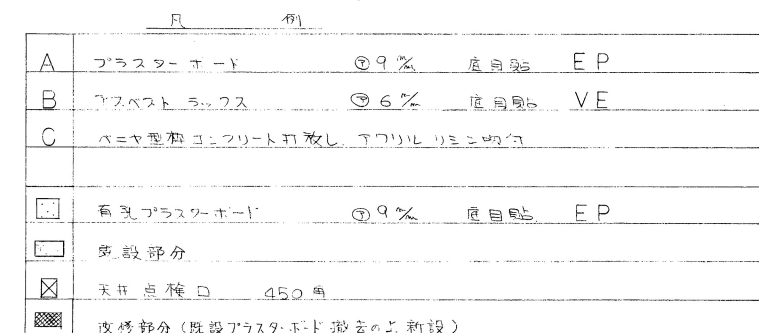 凡例
A プラスターボード ㋐9m/m 底目貼 EP
B アスベストラックス ㋐6m/m 底目貼 VE
C ベニヤ型枠コンクリート打放し アクリルリシン吹付
有孔プラスターボード ㋐9m/m 底目貼 EP
設部分
天井点検口 450角
改修部分(既設プラスターボード撤去の上新設)